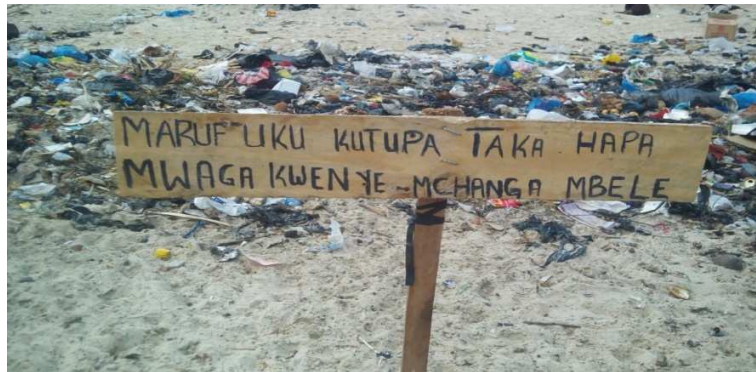 MARUFUKU KUTUPA TAKA HAPA
MWAGA KWENYE - MCHANGA MBELE